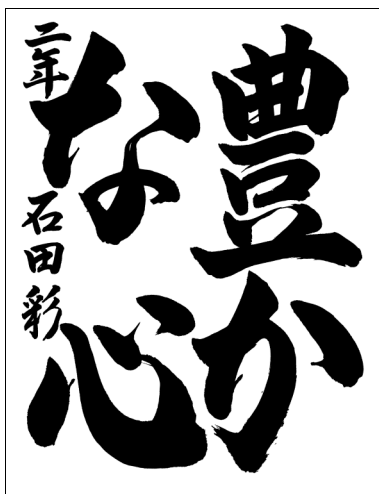 豊か
な心
二年 石田彩